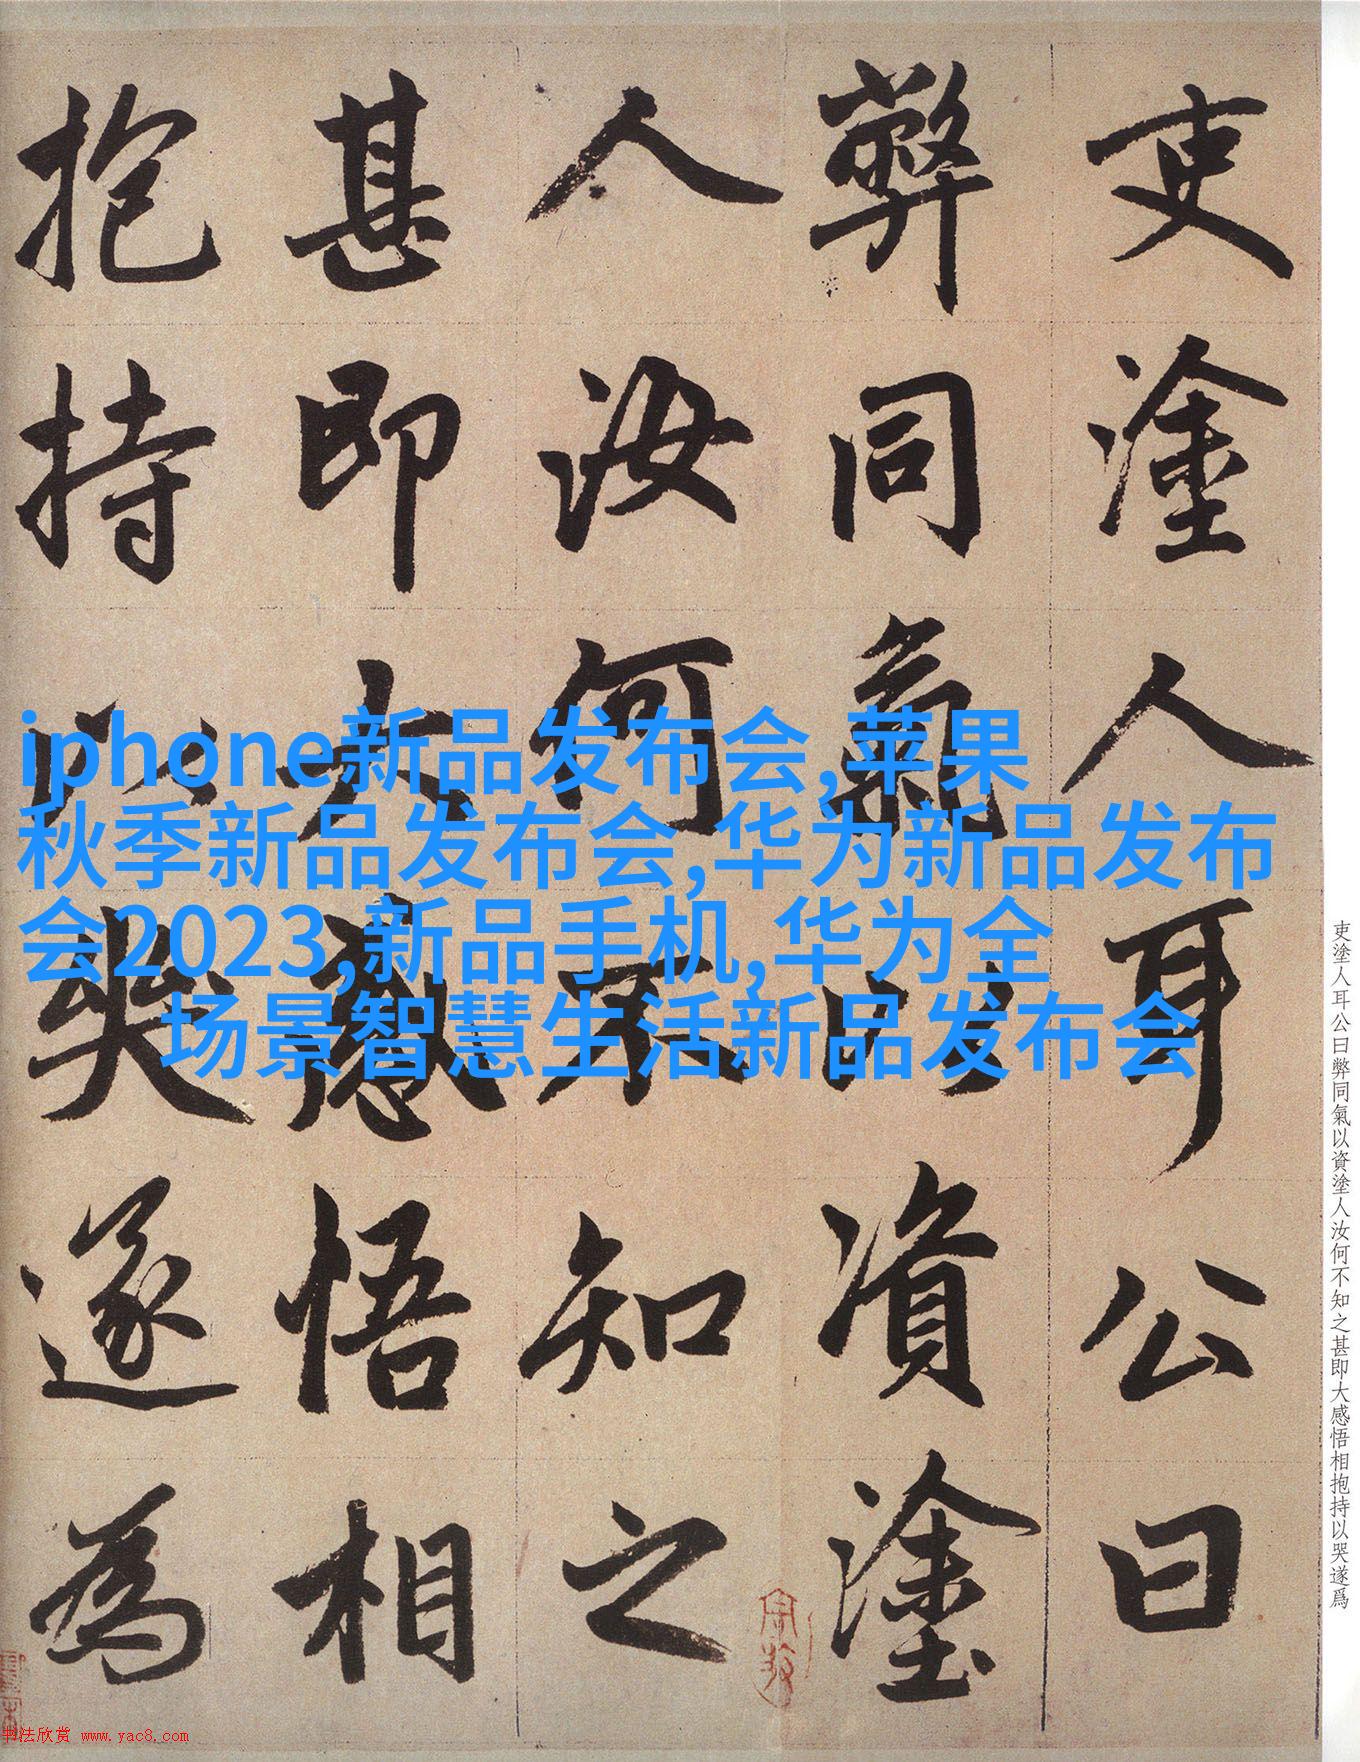 吏塗人耳公曰
弊同氣以資塗
人汝何不知之
甚即大感悟相
抱持以哭遂為
iphone新品发布会,苹果
秋季新品发布会,华为新品发布
会2023,新品手机,华为全
场景智慧生活新品发布会
吏塗人耳公曰弊同氣以資塗人汝何不知之甚即大感悟相抱持以哭遂爲
书法欣赏 www.yac8.com